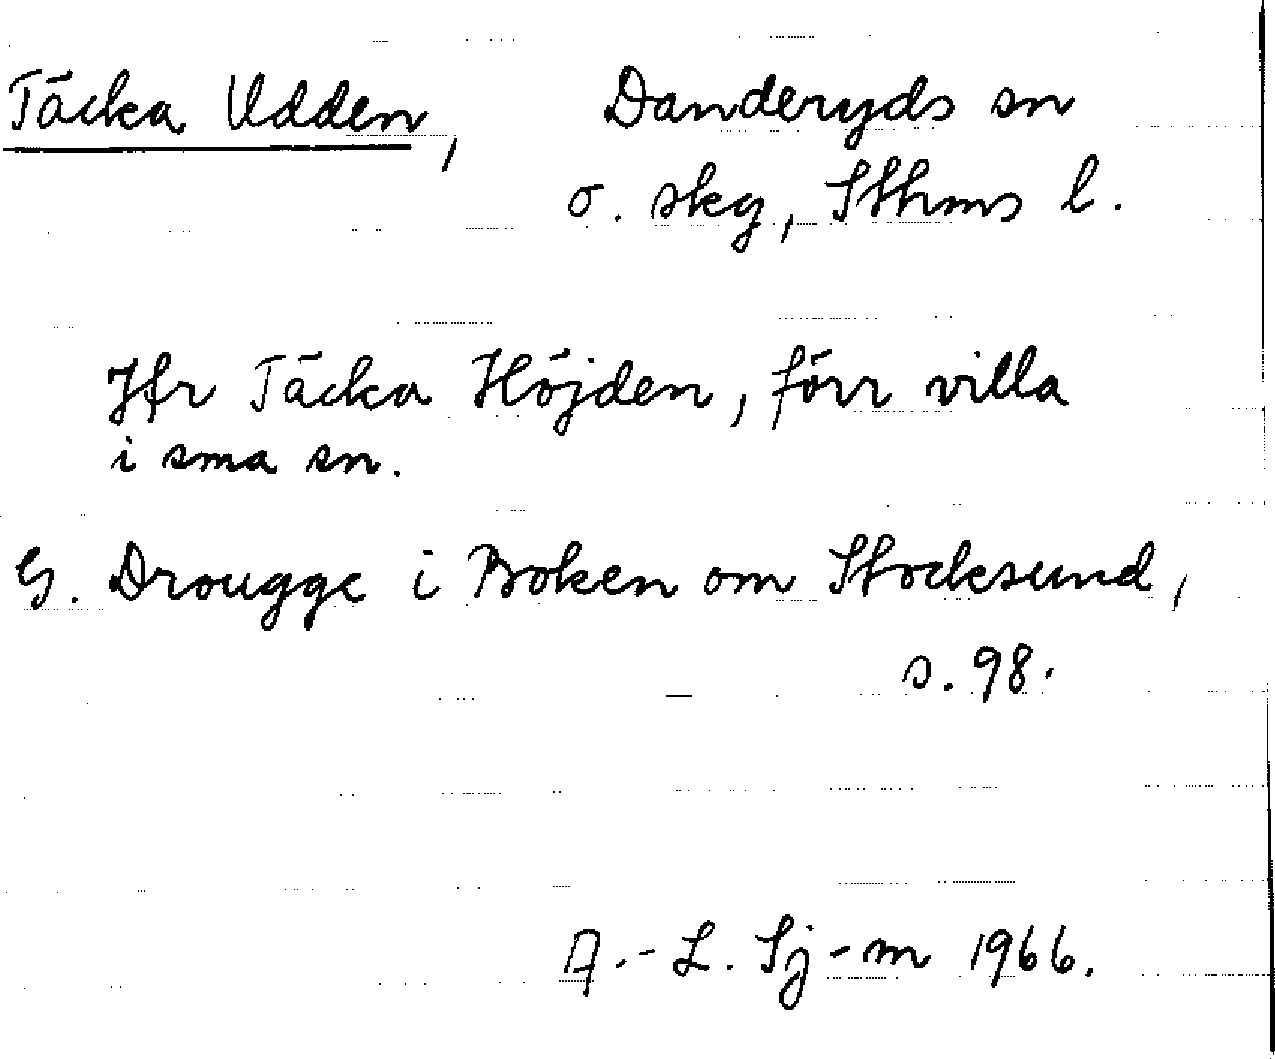 Täcka Udden, Danderyds sn
o. skg, Sthms l.
Jfr Täcka Höjden, förr villa
i sma sn.
G. Drougge i Boken om Stocksund,
s. 98.
A.-L. Sj-m 1966.